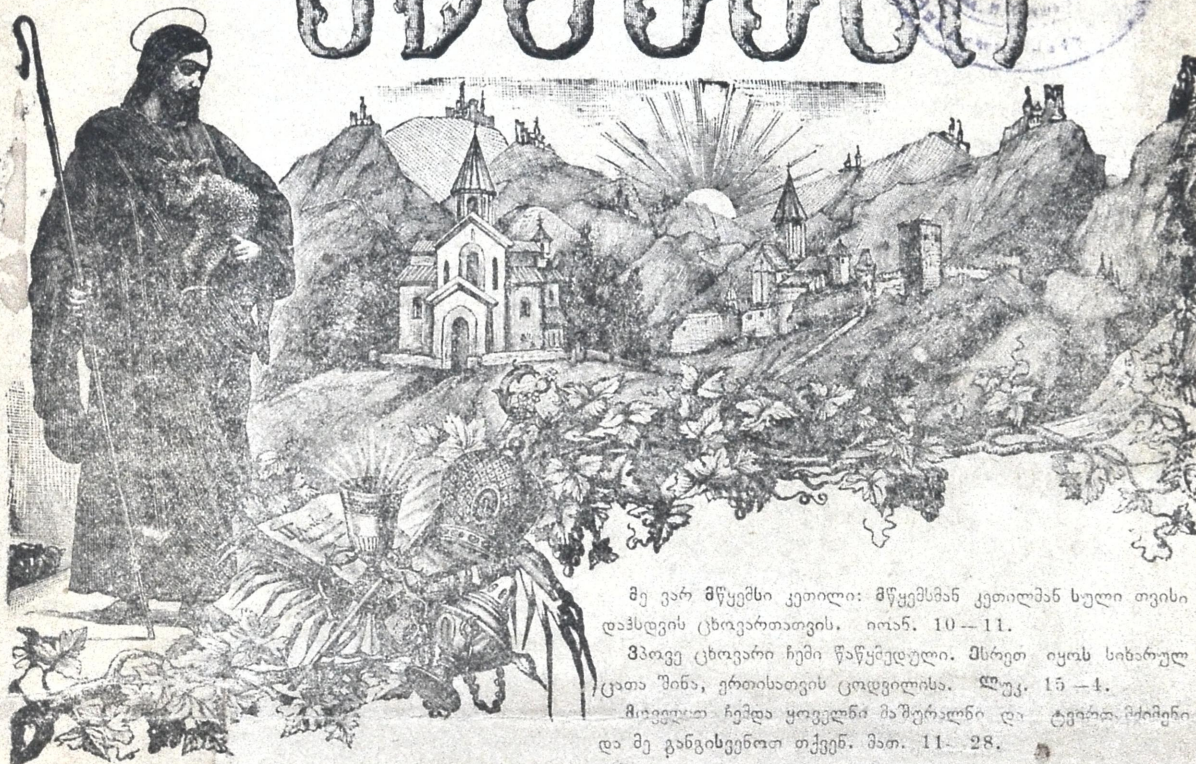 მე ვარ მწყემსი კეთილი: მწყემსმან კეთილმან სული თვისი
დაჰსდვის ცხოვართათვის. იოან. 10—11.
ვჰპოვე ცხოვარი ჩემი წაწყმედული. ესრეთ იყოს სიხარულ
ცათა შინა, ერთისათვის ცოდვილისა. ლუკ. 15—4.
მოვედით ჩემდა ყოველნი მაშურალნი და ტვირთ-მძიმენი
და მე განგისვენოთ თქვენ. მათ. 11—28.